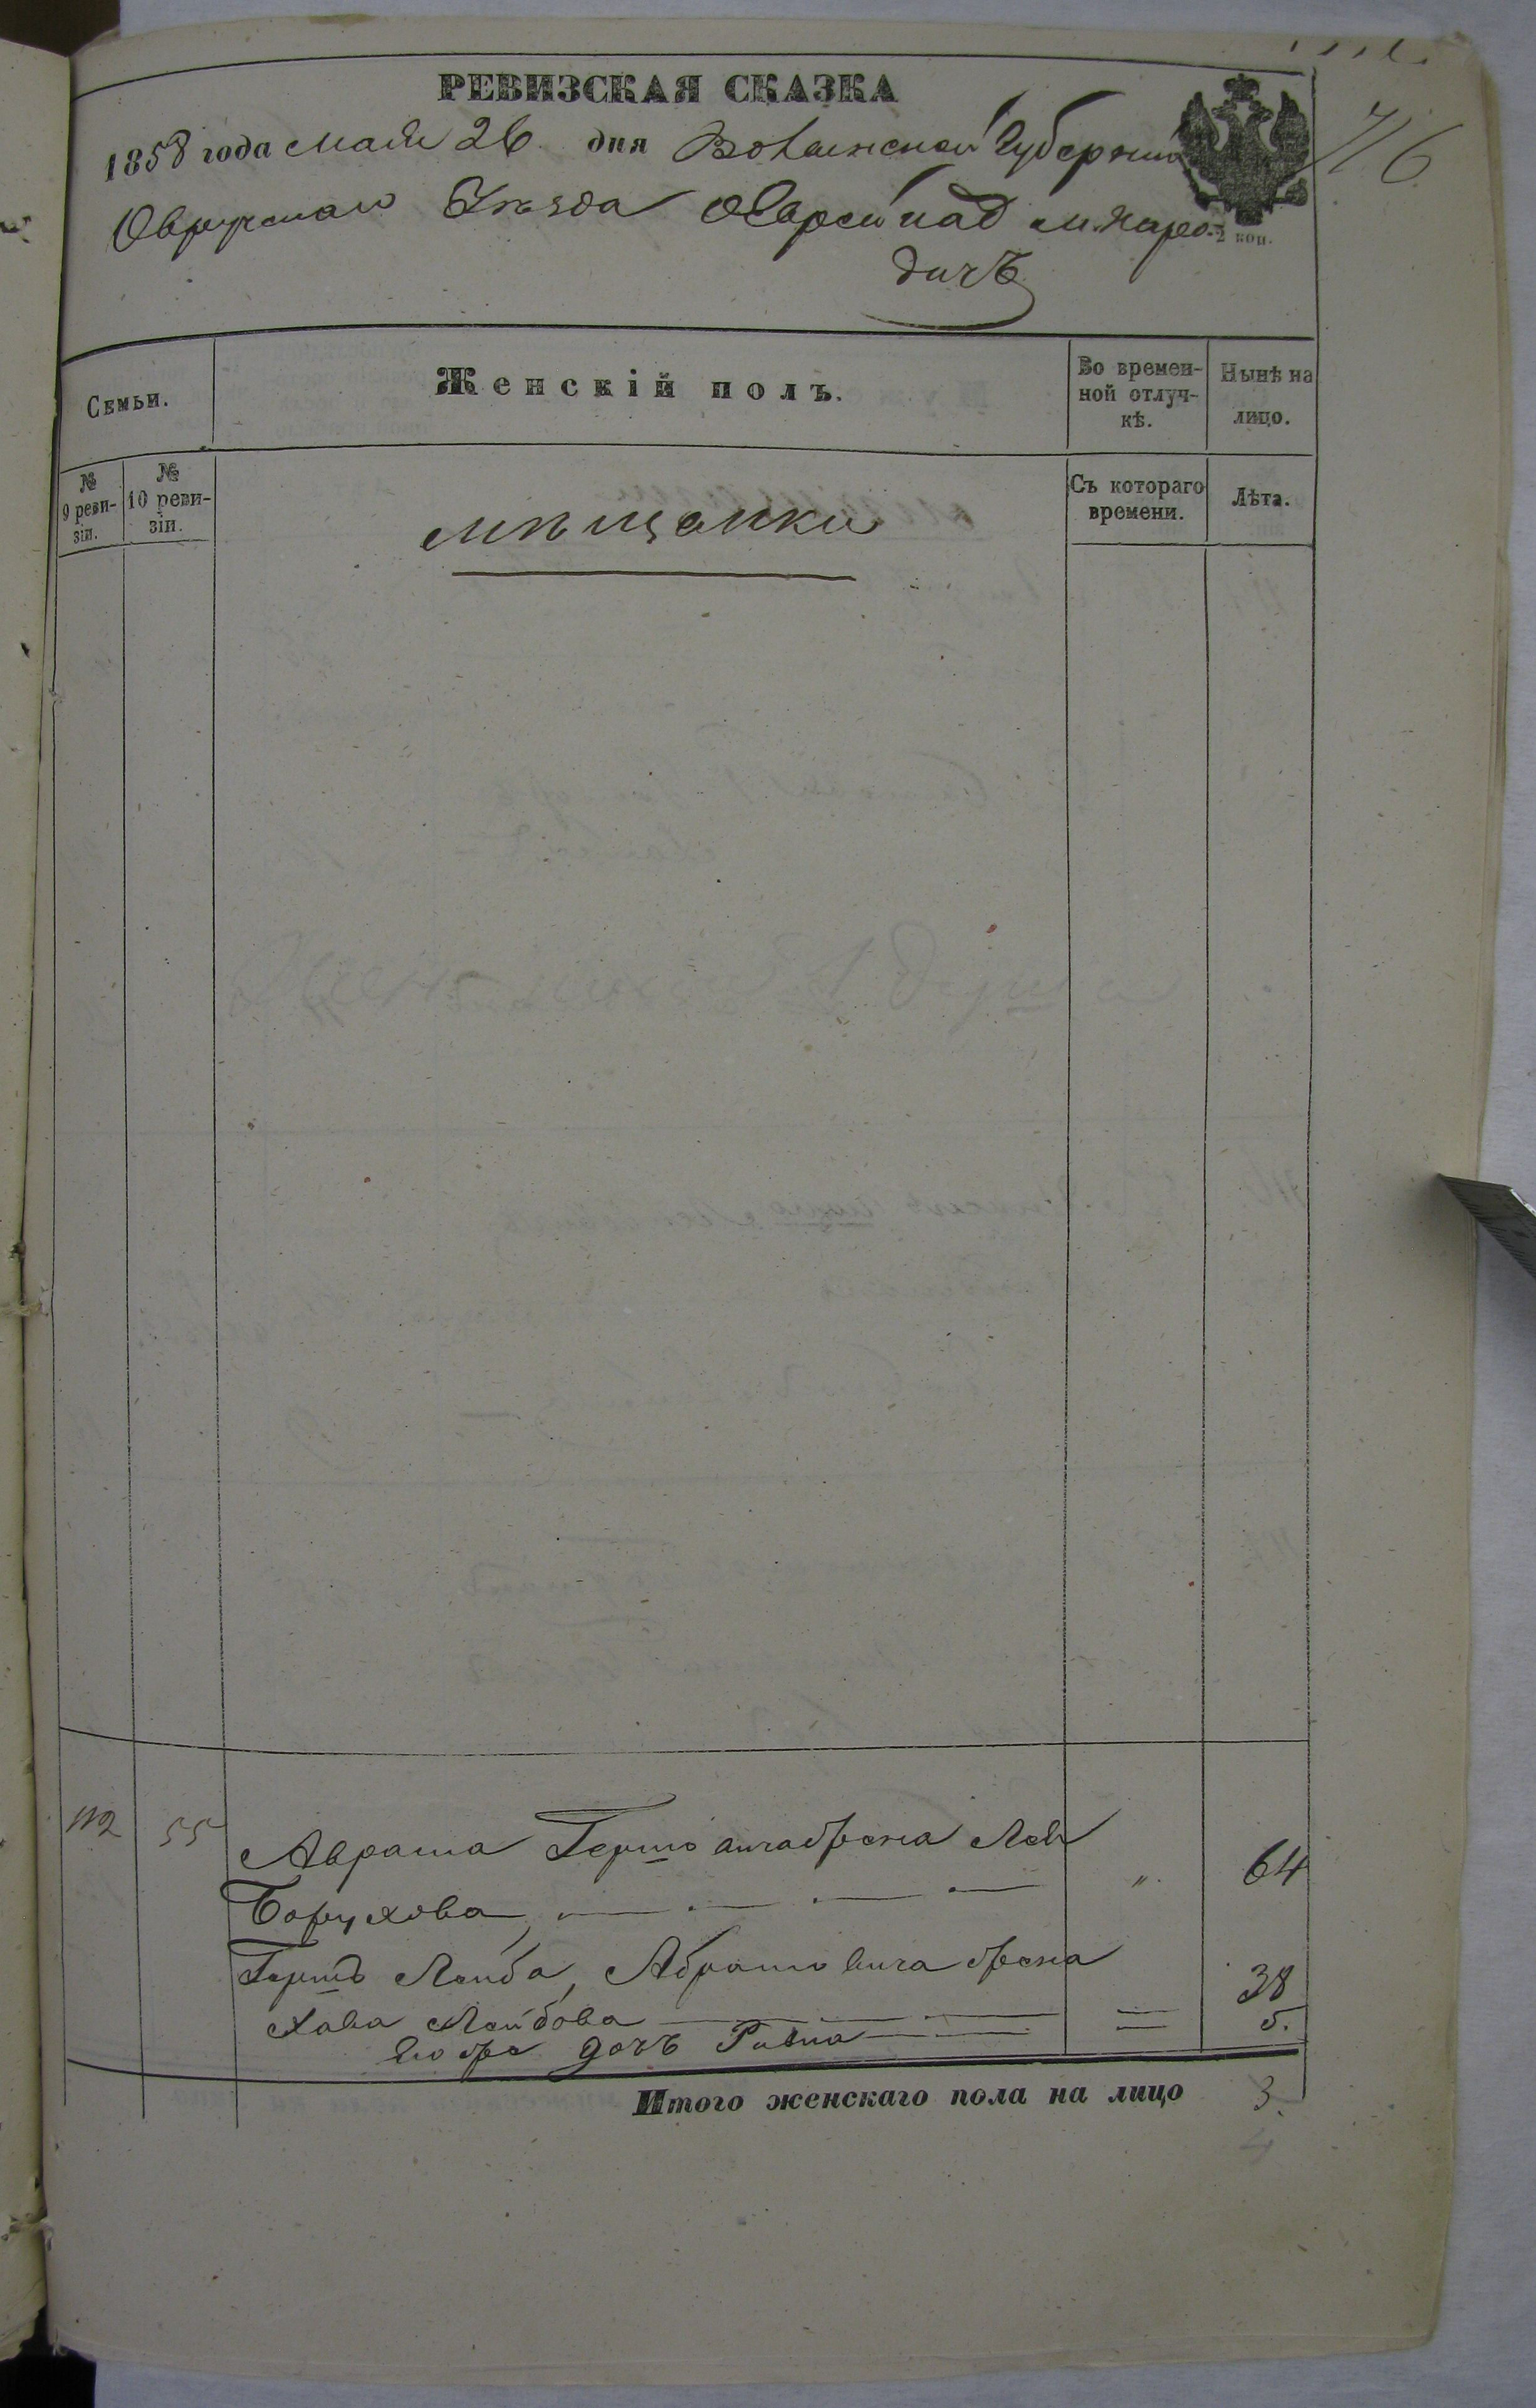 РЕВИЗСКАЯ СКАЗКА
1858 года Мая 26 дня Волынской Губернии
Овручскаго Уѣзда Еврей над м. Наро-
дичъ
2 коп.
76
Семьи.
Женскій полъ.
Во времен-
ной отлуч-
кѣ.
Нынѣ на
лицо.
№
9 реви-
зіи.
№
10 реви-
зіи.
Съ котораго
времени.
Лѣта.
мѣщанки
112 55 Аврама Гершовича жена Лея
Борухова " 64
Гершъ Лейба Абрамовича жена
Хава Лейбова 38
Его же дочь Ривка 5.
Итого женскаго пола на лицо 3.